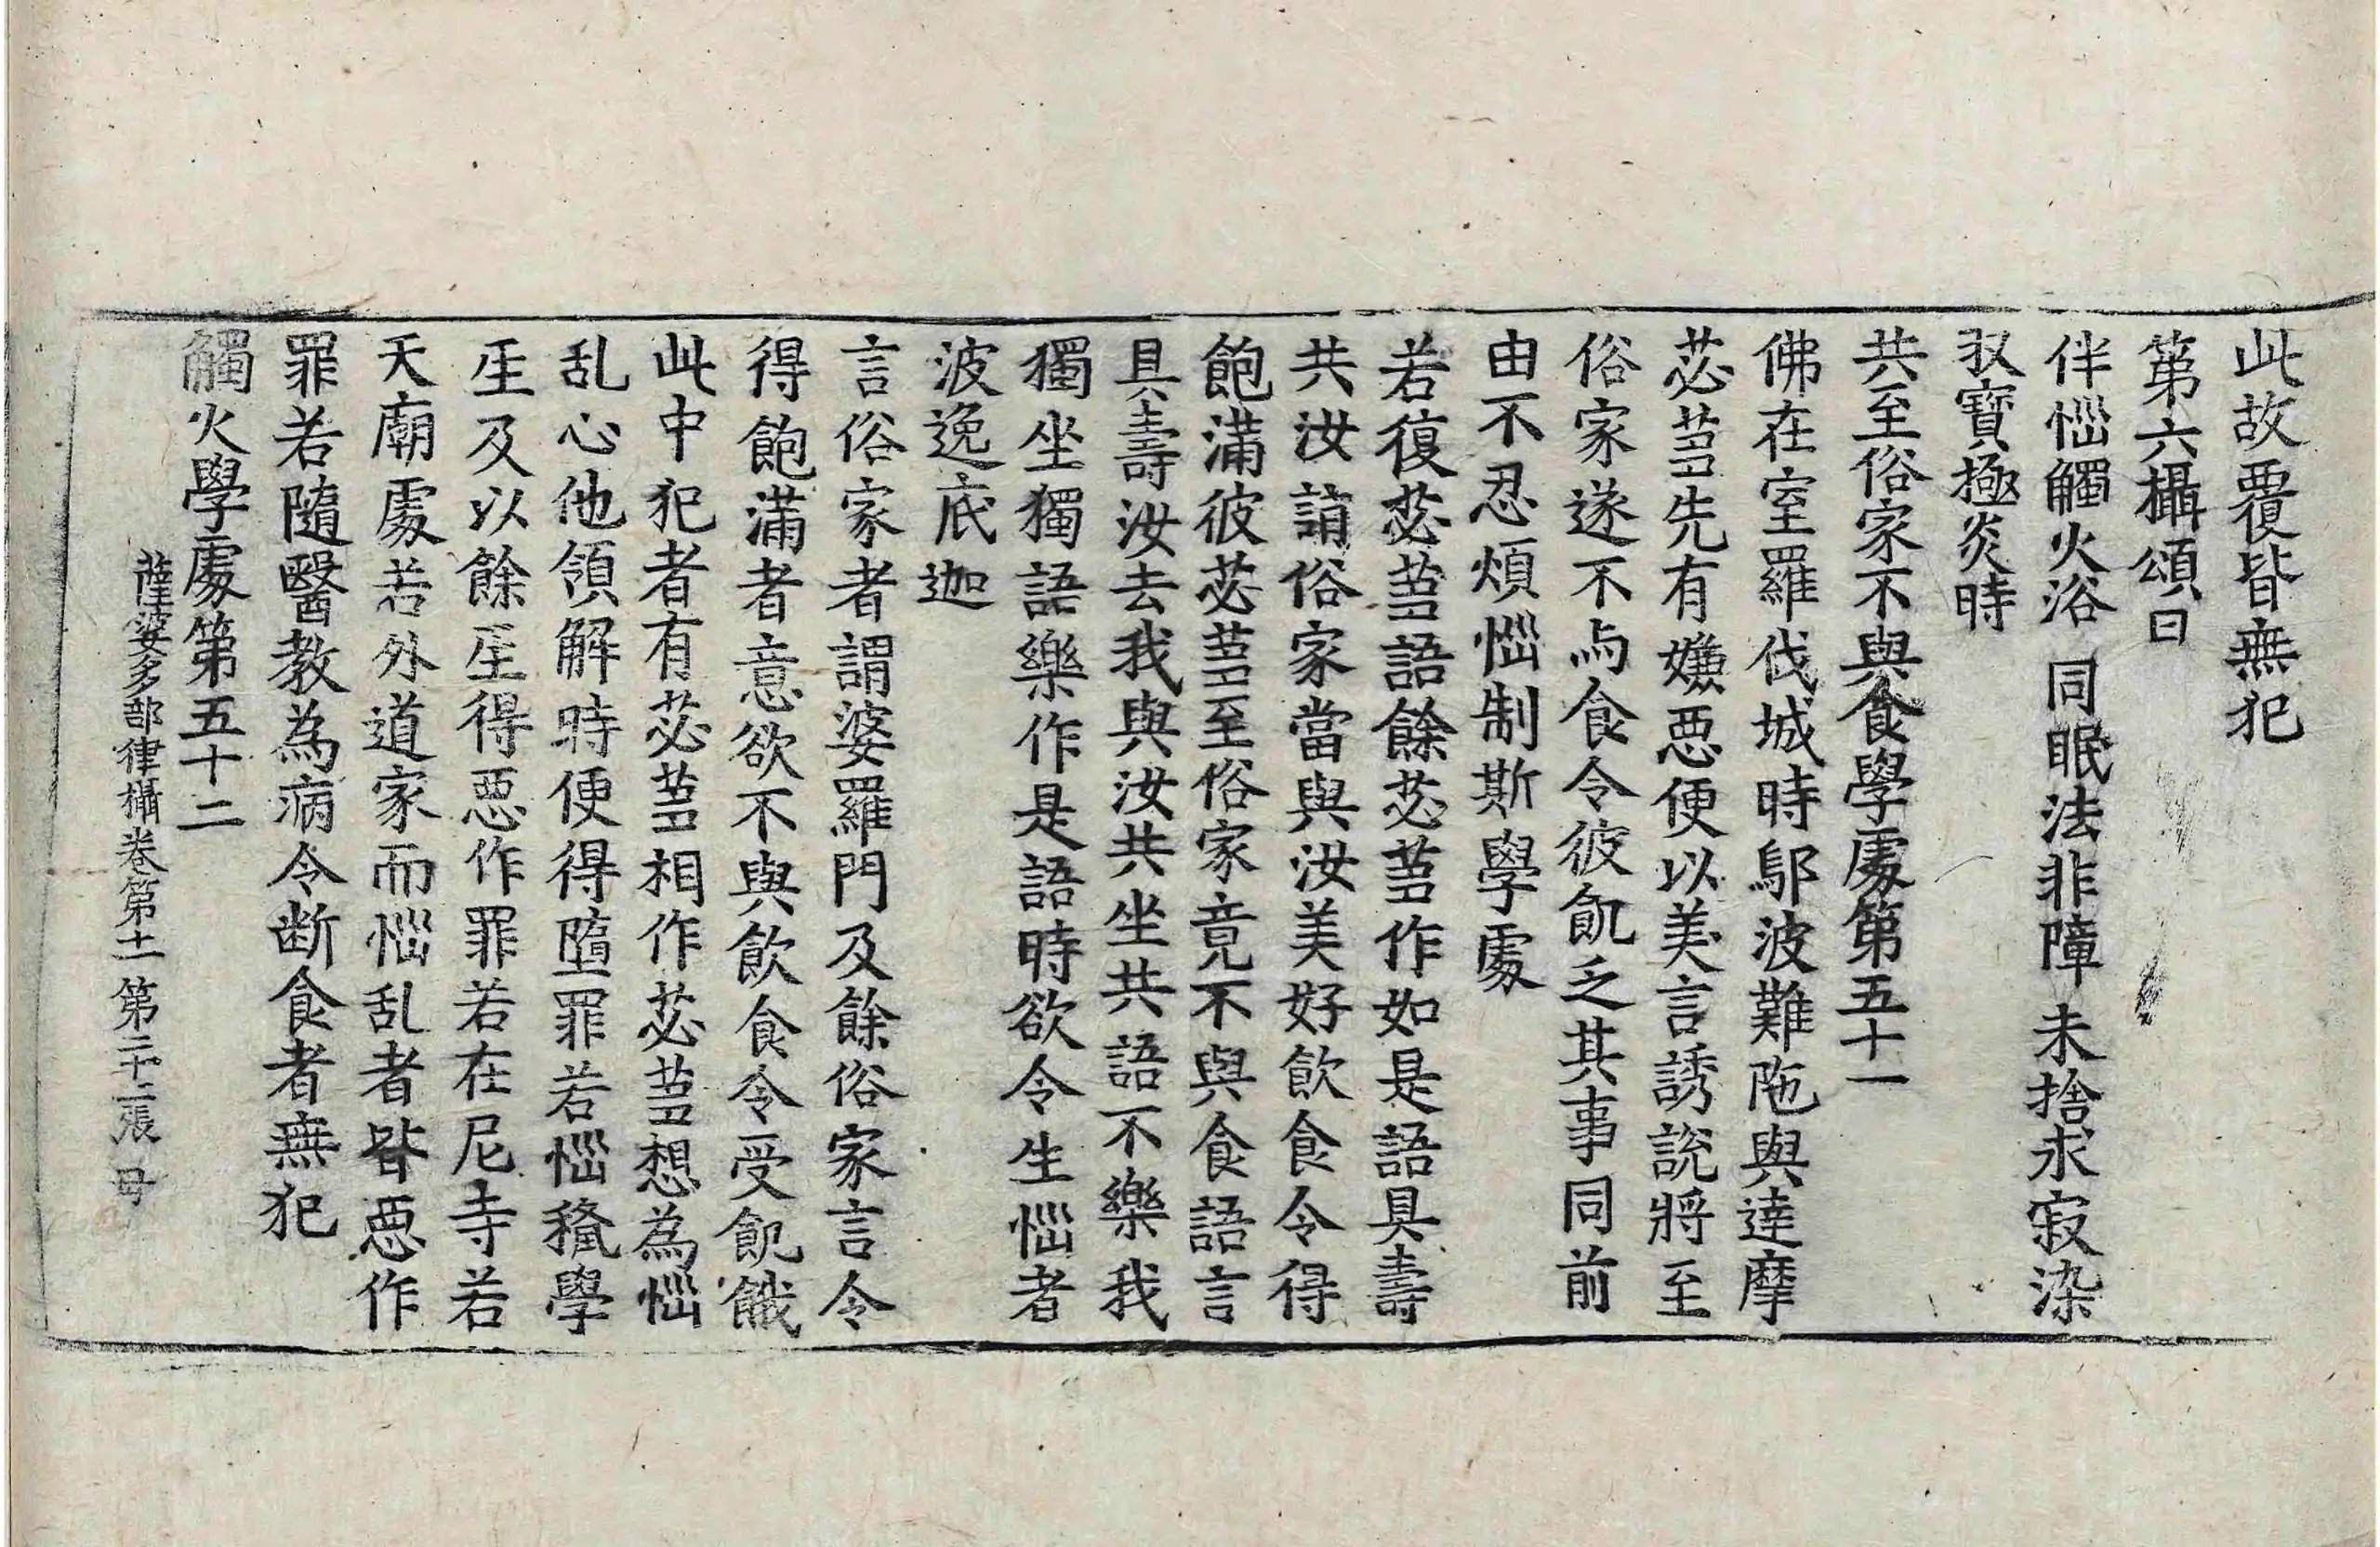 此故覆皆無犯
第六攝頌曰
伴惱觸火浴　同眠法非障　未捨求寂染
収寶極炎時
共至俗家不與食學處第五十一
佛在室羅伐城時鄔波難陁與達摩
苾蒭先有嫌惡便以美言誘說將至
俗家遂不与食令彼飢乏其事同前
由不忍煩惱制斯學處
若復苾蒭語餘苾蒭作如是語具壽
共汝詣俗家當與汝美好飲食令得
飽滿彼苾蒭至俗家竟不與食語言
具壽汝去我與汝共坐共語不樂我
獨坐獨語樂作是語時欲令生惱者
波逸底迦
言俗家者謂婆羅門及餘俗家言令
得飽滿者意欲不與飲食令受飢餓
此中犯者有苾蒭相作苾蒭想為惱
乱心他領解時便得墮罪若惱授學
𤯔及以餘𤯔得惡作罪若在尼寺若
天廟處若外道家而惱乱者皆惡作
罪若隨醫教為病令断食者無犯
觸火學處第五十二
薩婆多部律攝卷第十一　第二十二張　母